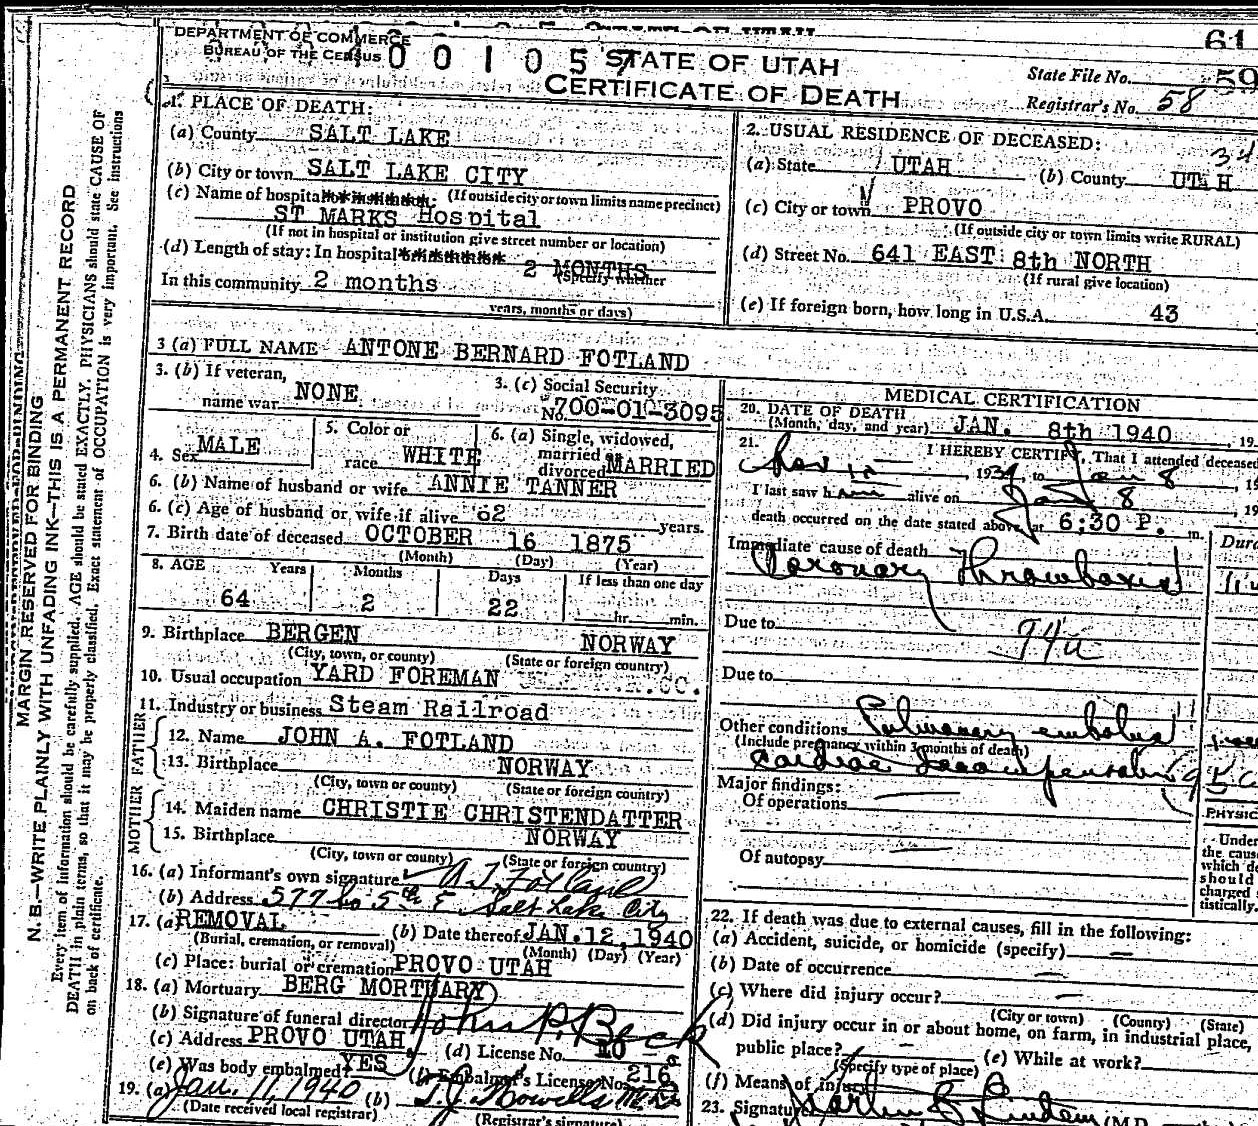 STATE OF UTAH
61
DEPARTMENT OF COMMERCE
BUREAU OF THE CENSUS
0 0 1 0 5 7
STATE OF UTAH
CERTIFICATE OF DEATH
State File No. 59
Registrar's No. 58
1. PLACE OF DEATH:
(a) County SALT LAKE
(b) City or town SALT LAKE CITY
(If outside city or town limits name precinct)
(c) Name of hospital
ST MARKS Hospital
(If not in hospital or institution give street number or location)
(d) Length of stay: In hospital 2 MONTHS
(Specify whether
In this community 2 months
years, months or days)
2. USUAL RESIDENCE OF DECEASED:
34
(a) State UTAH (b) County UTAH
(c) City or town PROVO
(If outside city or town limits write RURAL)
(d) Street No. 641 EAST 8th NORTH
(If rural give location)
(e) If foreign born, how long in U.S.A. 43
3 (a) FULL NAME ANTONE BERNARD FOTLAND
3. (b) If veteran, name war NONE
3. (c) Social Security No. 700-01-3095
4. Sex MALE
5. Color or race WHITE
6. (a) Single, widowed, married or divorced MARRIED
6. (b) Name of husband or wife ANNIE TANNER
6. (c) Age of husband or wife if alive 62 years.
7. Birth date of deceased OCTOBER 16 1875
(Month) (Day) (Year)
8. AGE Years Months Days If less than one day
64 2 22 hr. min.
9. Birthplace BERGEN NORWAY
(City, town, or county) (State or foreign country)
10. Usual occupation YARD FOREMAN
11. Industry or business Steam Railroad
FATHER
12. Name JOHN A. FOTLAND
13. Birthplace NORWAY
(City, town or county) (State or foreign country)
MOTHER
14. Maiden name CHRISTIE CHRISTENDATTER
15. Birthplace NORWAY
(City, town or county) (State or foreign country)
16. (a) Informant's own signature A. J. Fotland
(b) Address 577 So 5th E Salt Lake City
17. (a) REMOVAL (b) Date thereof JAN. 12, 1940
(Burial, cremation, or removal) (Month) (Day) (Year)
(c) Place: burial or cremation PROVO UTAH
18. (a) Mortuary BERG MORTUARY
(b) Signature of funeral director John P. Beck
(c) Address PROVO UTAH (d) License No. 10
(e) Was body embalmed YES (f) Embalmer's License No. 216
19. (a) Jan. 11, 1940 (b) T. J. Howells
(Date received local registrar) (Registrar's signature)
MEDICAL CERTIFICATION
20. DATE OF DEATH
(Month, day, and year) JAN. 8th 1940, 19
21. I HEREBY CERTIFY, That I attended deceased
1939, to Jan 8, 19
I last saw him alive on Jan 8, 19
death occurred on the date stated above, at 6:30 P. m.
Immediate cause of death
Coronary Thrombosis
Due to
94a
Due to
Other conditions Pulmonary embolus
(Include pregnancy within 3 months of death)
Cardiac Decompensation
Major findings:
Of operations
Of autopsy
PHYSIC
Under
the caus
which de
should
charged
tistically.
22. If death was due to external causes, fill in the following:
(a) Accident, suicide, or homicide (specify)
(b) Date of occurrence
(c) Where did injury occur?
(City or town) (County) (State)
(d) Did injury occur in or about home, on farm, in industrial place,
public place? (e) While at work?
(Specify type of place)
(f) Means of injury
23. Signature (M.D.
MARGIN RESERVED FOR BINDING
N. B.—WRITE PLAINLY WITH UNFADING INK—THIS IS A PERMANENT RECORD
Every item of information should be carefully supplied. AGE should be stated EXACTLY. PHYSICIANS should state CAUSE OF
DEATH in plain terms, so that it may be properly classified. Exact statement of OCCUPATION is very important. See instructions
on back of certificate.